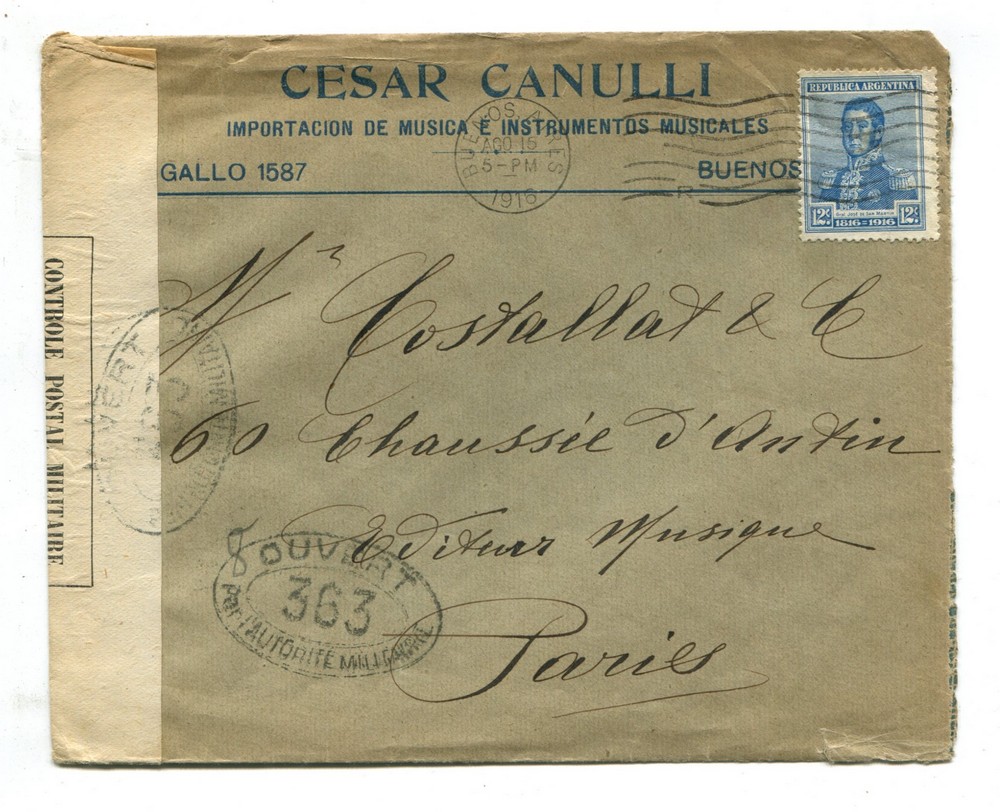 CESAR CANULLI
IMPORTACION DE MUSICA E INSTRUMENTOS MUSICALES
GALLO 1587
BUENOS
BUENOS AIRES
AGO 15
5-PM
1916
R
REPUBLICA ARGENTINA
Gral José de San Martín
12c 12c
1816=1916
Mr Costallat & C
60 Chaussée d'Antin
Editeurs Musique
Paris
CONTROLE POSTAL MILITAIRE
OUVERT
8
OUVERT
363
par l'AUTORITÉ MILITAIRE